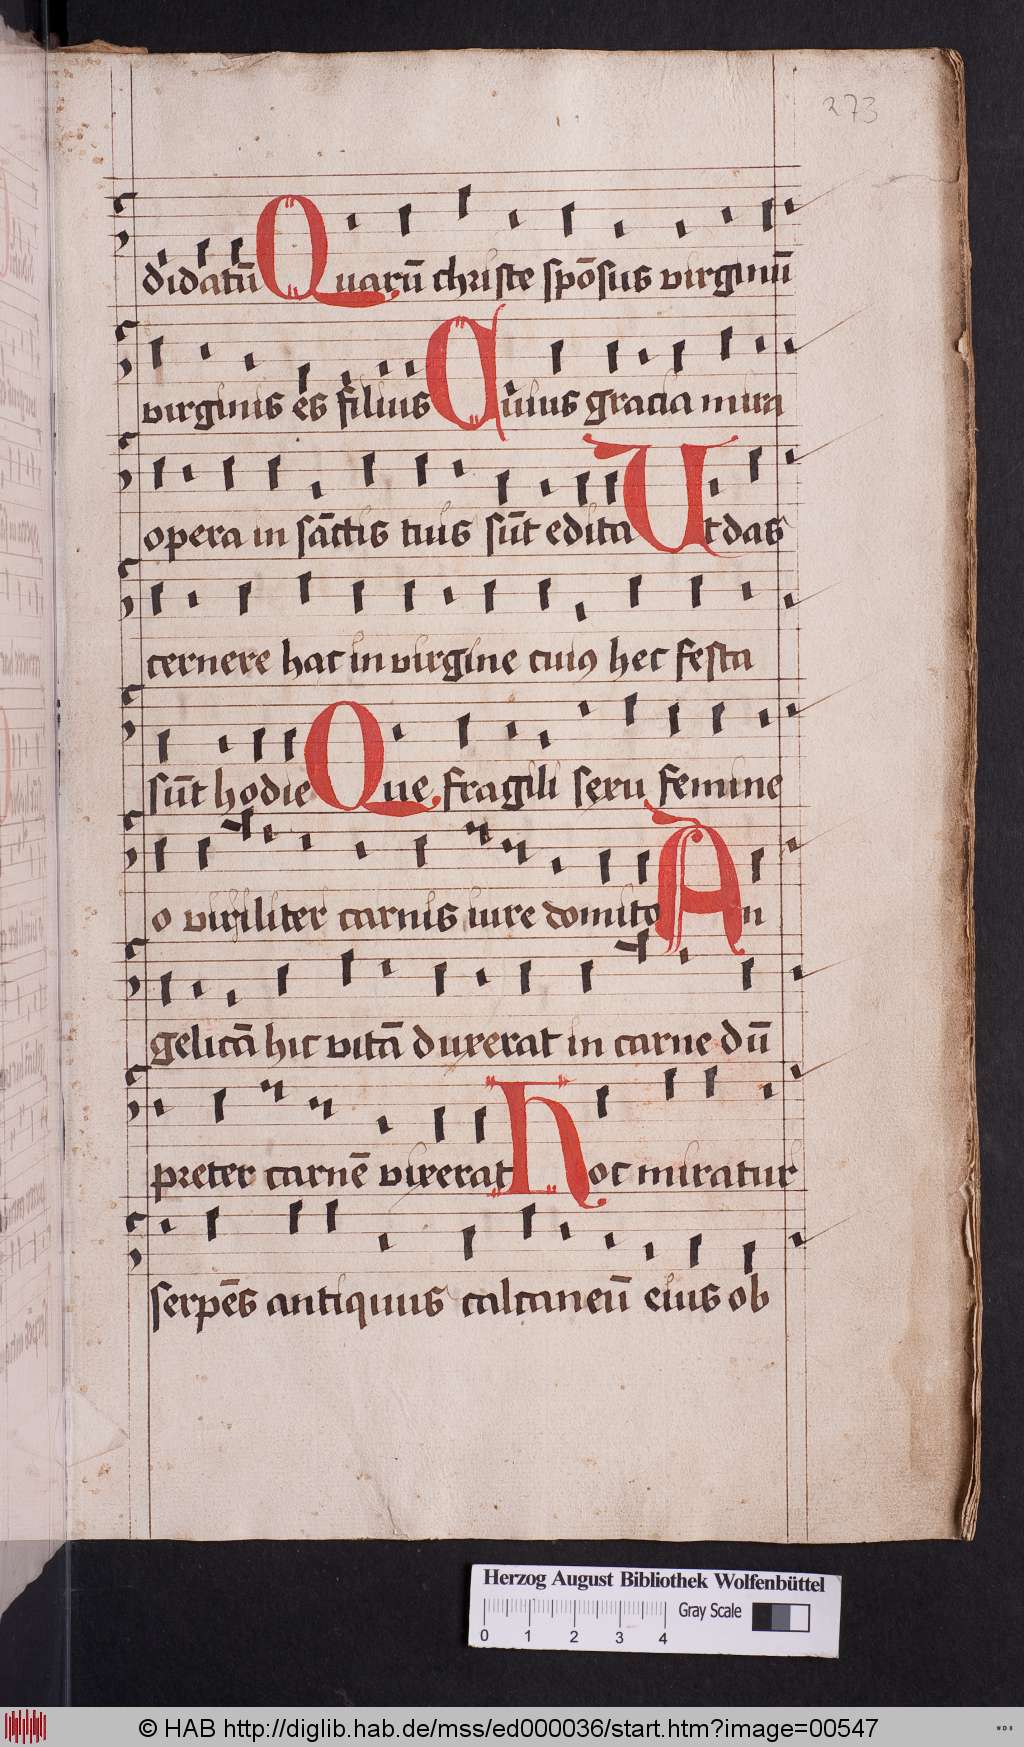 273
didatū Quarū christe spōsus virginū
virginis es filius Cuius gracia mira
opera in sāctis tuis sūt edita Ut das
cernere hac in virgine cuiꝯ hec festa
sūt hodie Que fragili sexu femine
o viriliter carnis iure domito An
gelicā hic vitā duxerat in carne dū
preter carnē vixerat Hoc miratur
serpēs antiquus calcaneū eius ob
Herzog August Bibliothek Wolfenbüttel
Gray Scale
0 1 2 3 4
© HAB http://diglib.hab.de/mss/ed000036/start.htm?image=00547